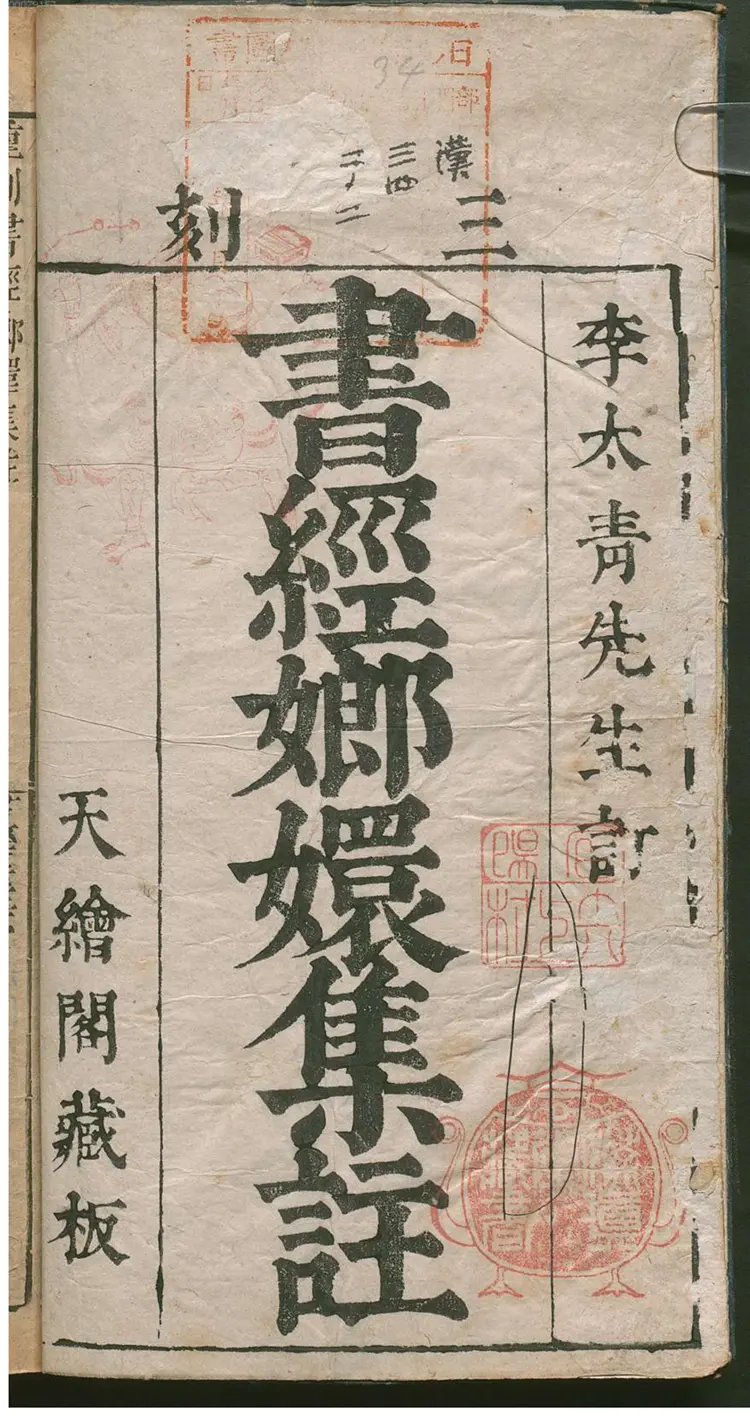 34
漢
三四
三刻
李太青先生訂
書經嫏嬛集註
天繪閣藏板